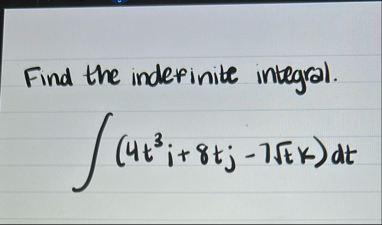 Find the indefinite integral.
∫(4t³i + 8tj - 7√t k) dt